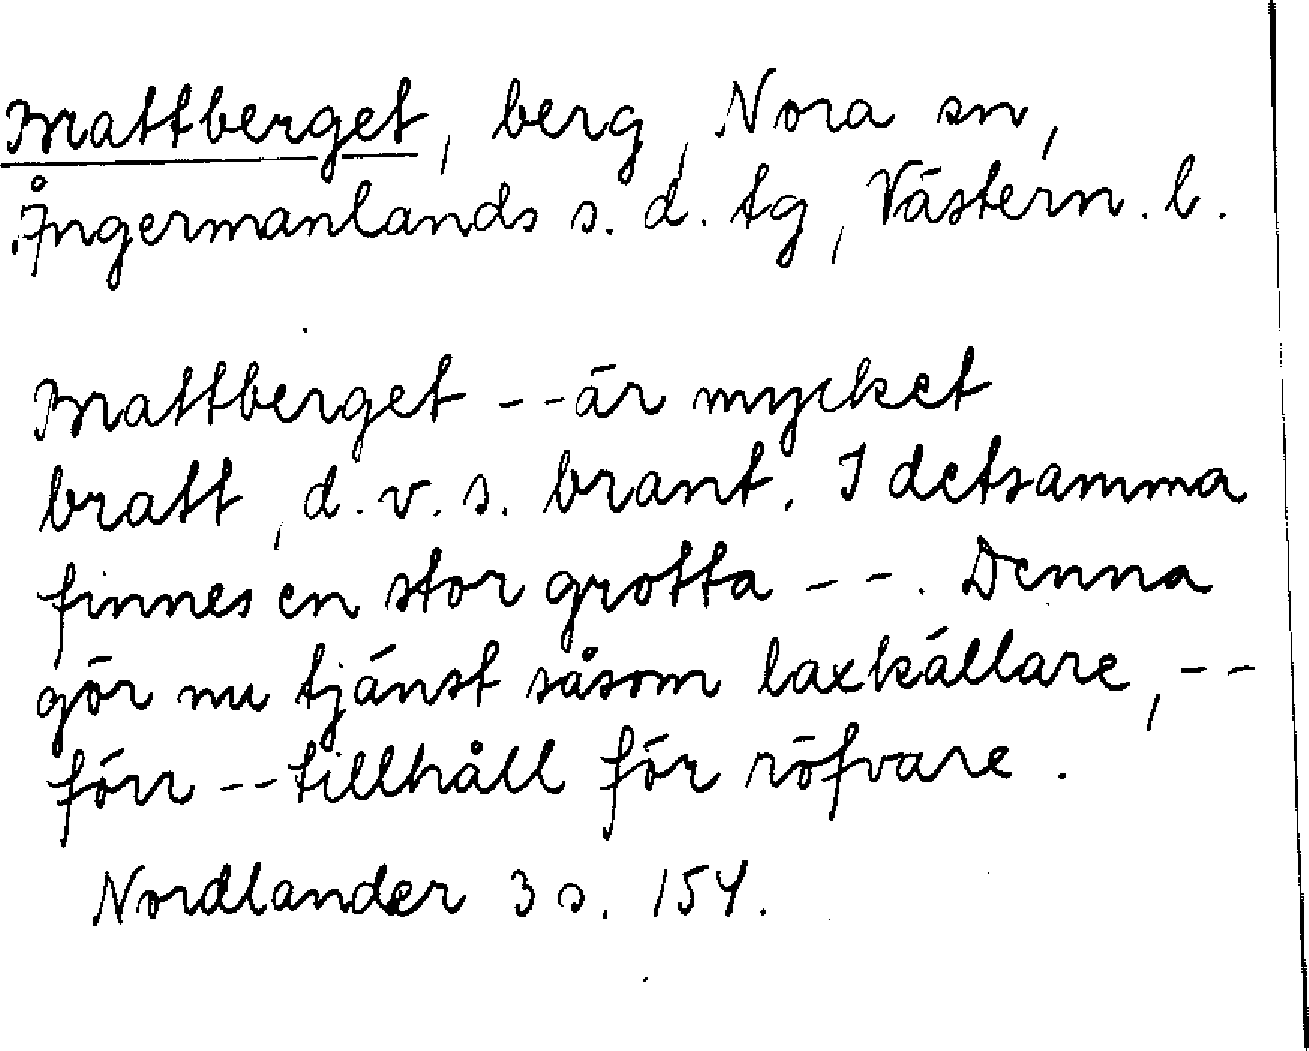 Brattberget, berg, Nora sn,
Ångermanlands s. d. tg, Västern. l.
Brattberget -- är mycket
bratt, d. v. s. brant. I detsamma
finnes en stor grotta - - . Denna
gör nu tjänst såsom laxkällare, --
förr -- tillhåll för röfvare.
Nordlander 3 s. 154.